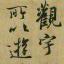 觀宇
所以遊